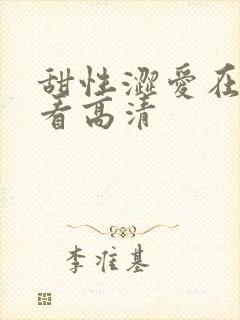 甜性澀愛在
看高清
李准基